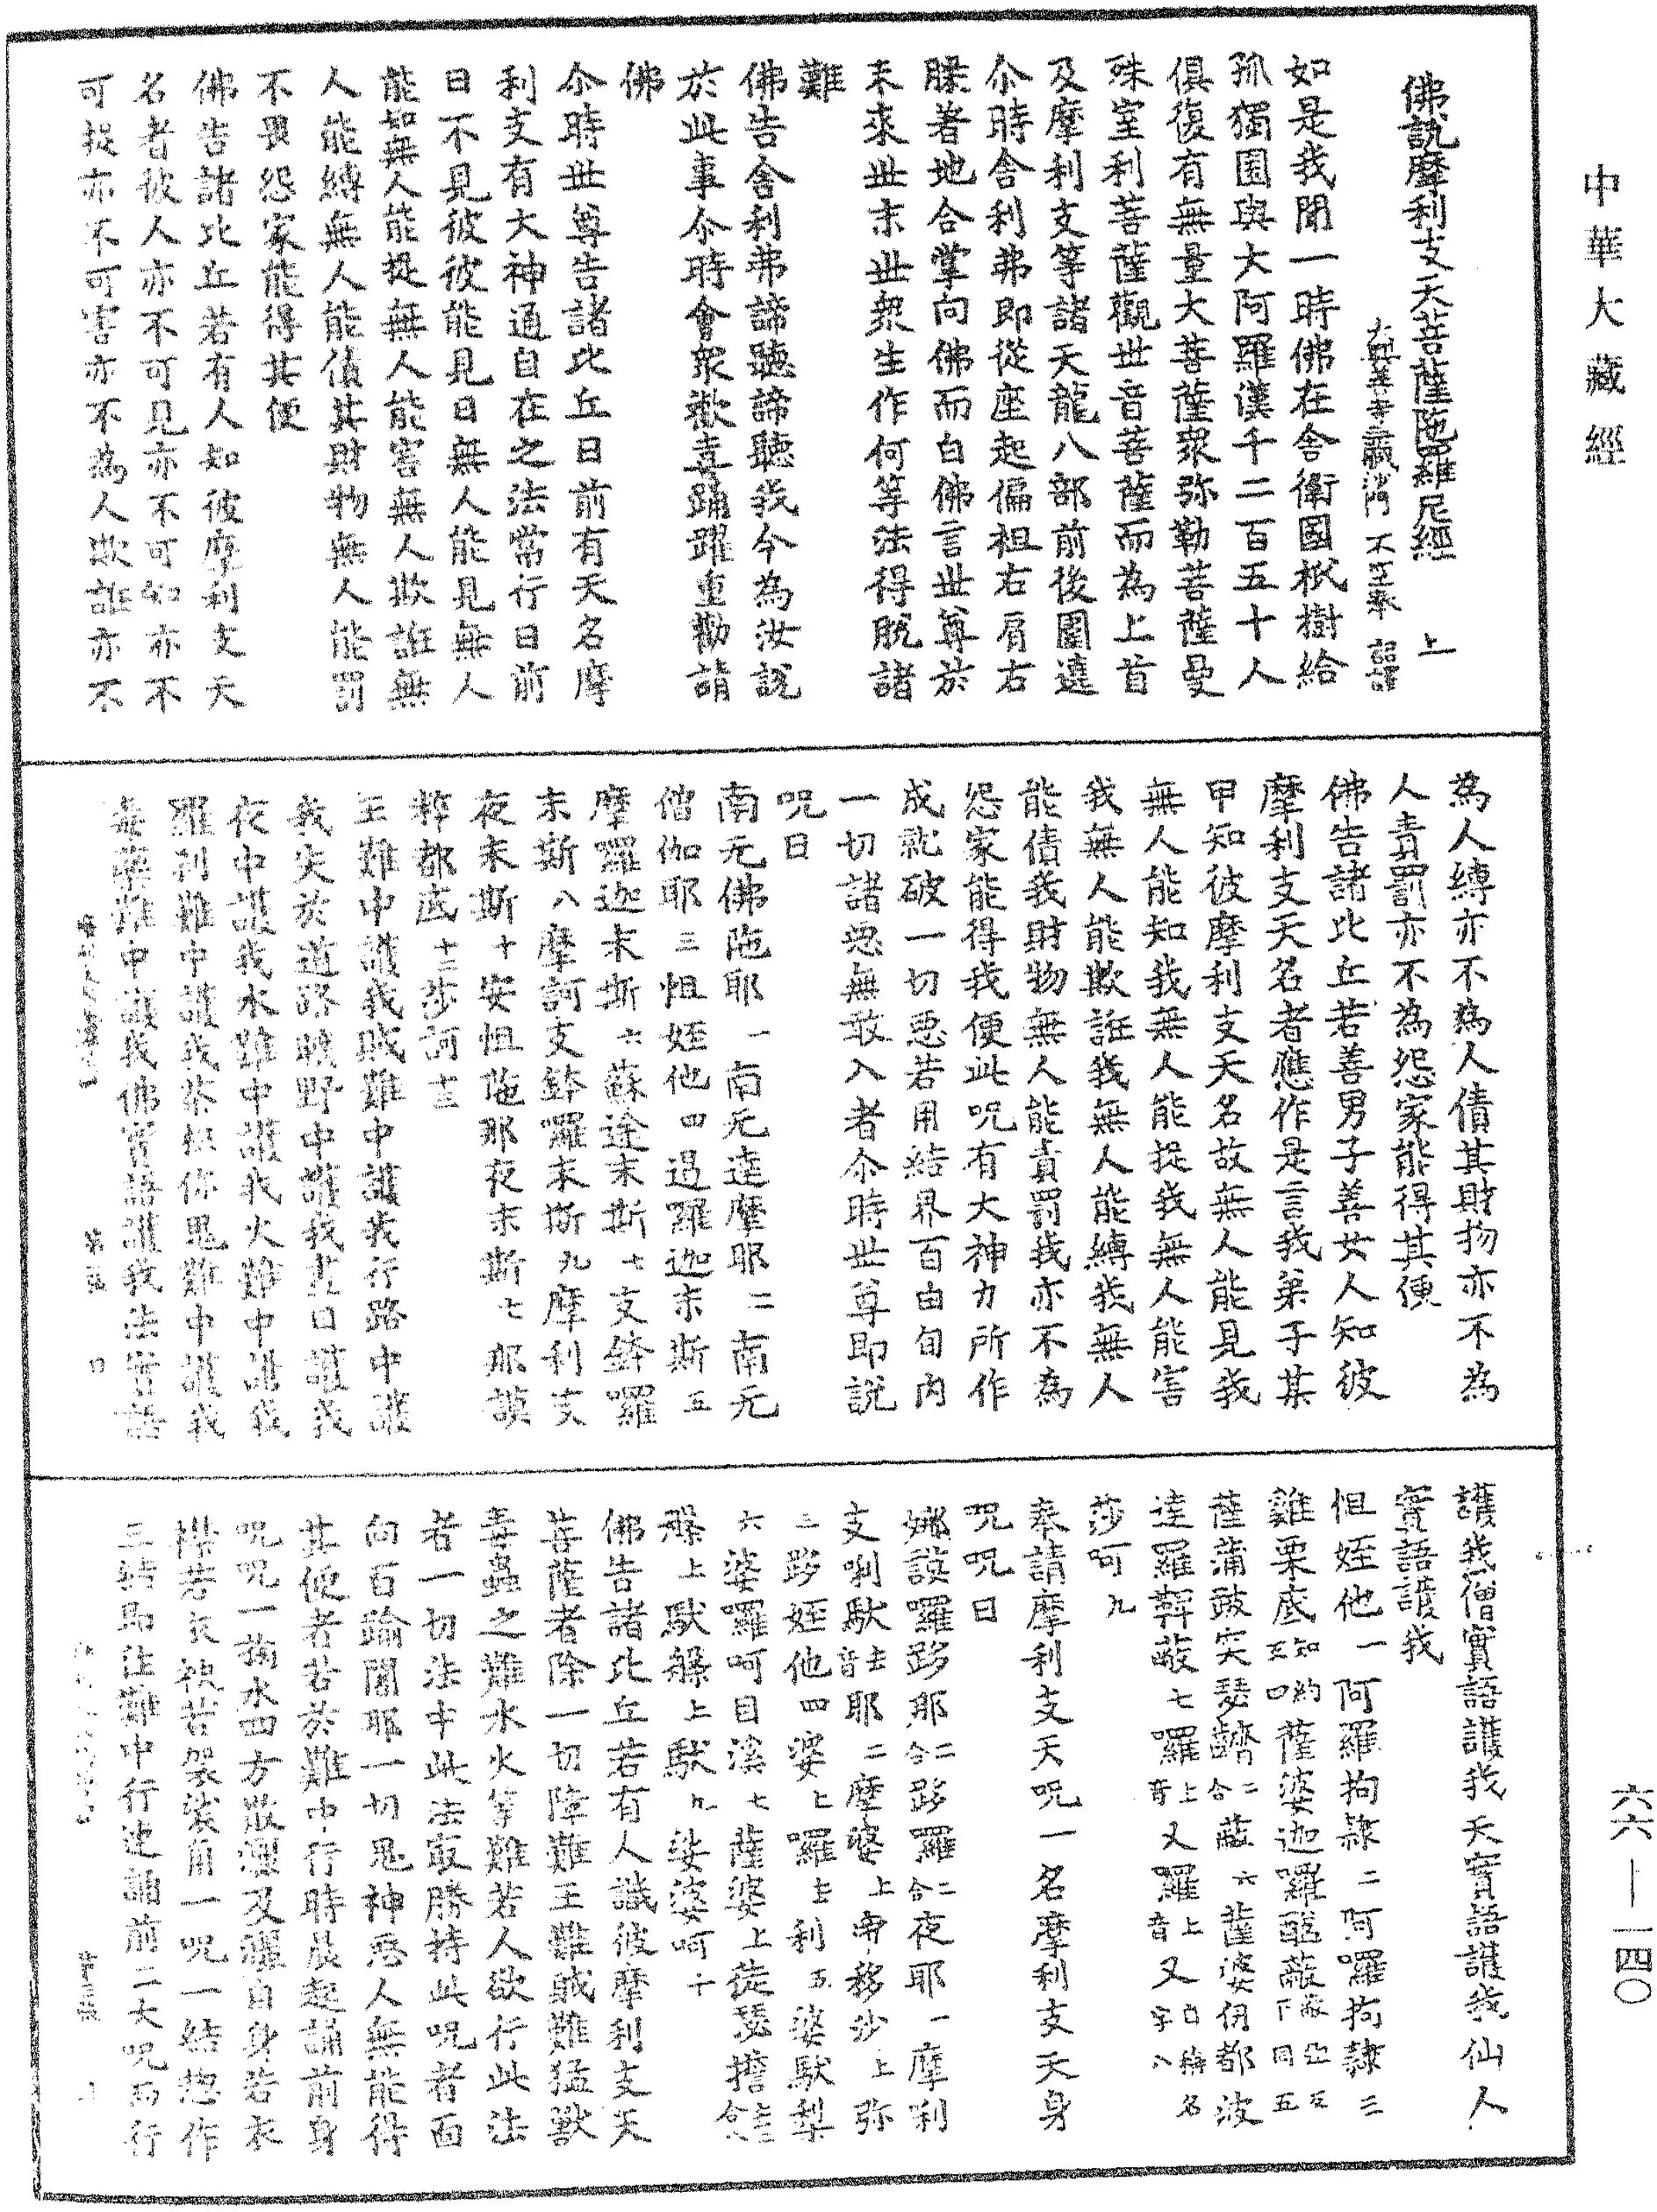 中華大藏經
佛說摩利支天菩薩陁羅尼經　上
大興善寺三藏沙門　不空奉　詔譯
如是我聞一時佛在舍衛國祇樹給
孤獨園與大阿羅漢千二百五十人
俱復有無量大菩薩眾弥勒菩薩曼
殊室利菩薩觀世音菩薩而為上首
及摩利支等諸天龍八部前後圍遶
尒時舍利弗即從座起偏袒右肩右
膝著地合掌向佛而白佛言世尊於
未來世末世眾生作何等法得脫諸
難
佛告舍利弗諦聽諦聽我今為汝說
於此事尒時會眾歡喜踊躍重勸請
佛
尒時世尊告諸比丘日前有天名摩
利支有大神通自在之法常行日前
日不見彼彼能見日無人能見無人
能知無人能捉無人能害無人欺誑無
人能縛無人能債其財物無人能罰
不畏怨家能得其便
佛告諸比丘若有人知彼摩利支天
名者彼人亦不可見亦不可知亦不
可捉亦不可害亦不為人欺誑亦不
為人縛亦不為人債其財物亦不為
人責罰亦不為怨家能得其便
佛告諸比丘若善男子善女人知彼
摩利支天名者應作是言我弟子某
甲知彼摩利支天名故無人能見我
無人能知我無人能捉我無人能害
我無人能欺誑我無人能縛我無人
能債我財物無人能責罰我亦不為
怨家能得我便此呪有大神力所作
成就破一切惡若用結界百由旬內
一切諸惡無敢入者尒時世尊即說
呪曰
南无佛陁耶一南无達摩耶二南无
僧伽耶三怛姪他四遏羅迦末斯五
摩囉迦末斯六蘇途末斯七支鉾羅
末斯八摩訶支鉾囉末斯九摩利支
夜末斯十安怛陁那夜末斯七那謨
粹都底十二莎訶十三
王難中護我賊難中護我行路中護
我失於道路曠野中護我晝日護我
夜中護我水難中護我火難中護我
羅剎難中護我荼枳你鬼難中護我
毒藥難中護我佛實語護我法實語
護我僧實語護我天實語護我仙人
實語護我
怛姪他一阿羅拘隸二阿囉拘隸三
雞栗底知約反四薩婆迦囉醯蔽下同五
薩蒲豉突瑟躋二合蔽六薩婆伊都波
達羅鞞蔽七囉上音又羅上音又自稱名字八
莎呵九
奉請摩利支天呪一名摩利支天身
呪呪曰
娜謨囉跢耶二合跢羅二合夜耶一摩利
支唎馱去音耶二摩婆上帝移沙上弥
三跢姪他四婆上囉去利五婆馱梨
六婆囉呵目溪七薩婆上徒瑟擔去二合
槃上馱槃上馱九娑婆呵十
佛告諸比丘若有人識彼摩利支天
菩薩者除一切障難王難賊難猛獸
毒蟲之難水火等難若人欲行此法
者一切法中此法最勝持此呪者面
向百踰闍耶一切鬼神惡人無能得
其便者若於難中行時晨起誦前身
呪呪一掬水四方散灑及灑自身若衣
襟若衣袂若袈裟角一呪一結揔作
三結即往難中行達誦前二大呪而行
六六—一四〇